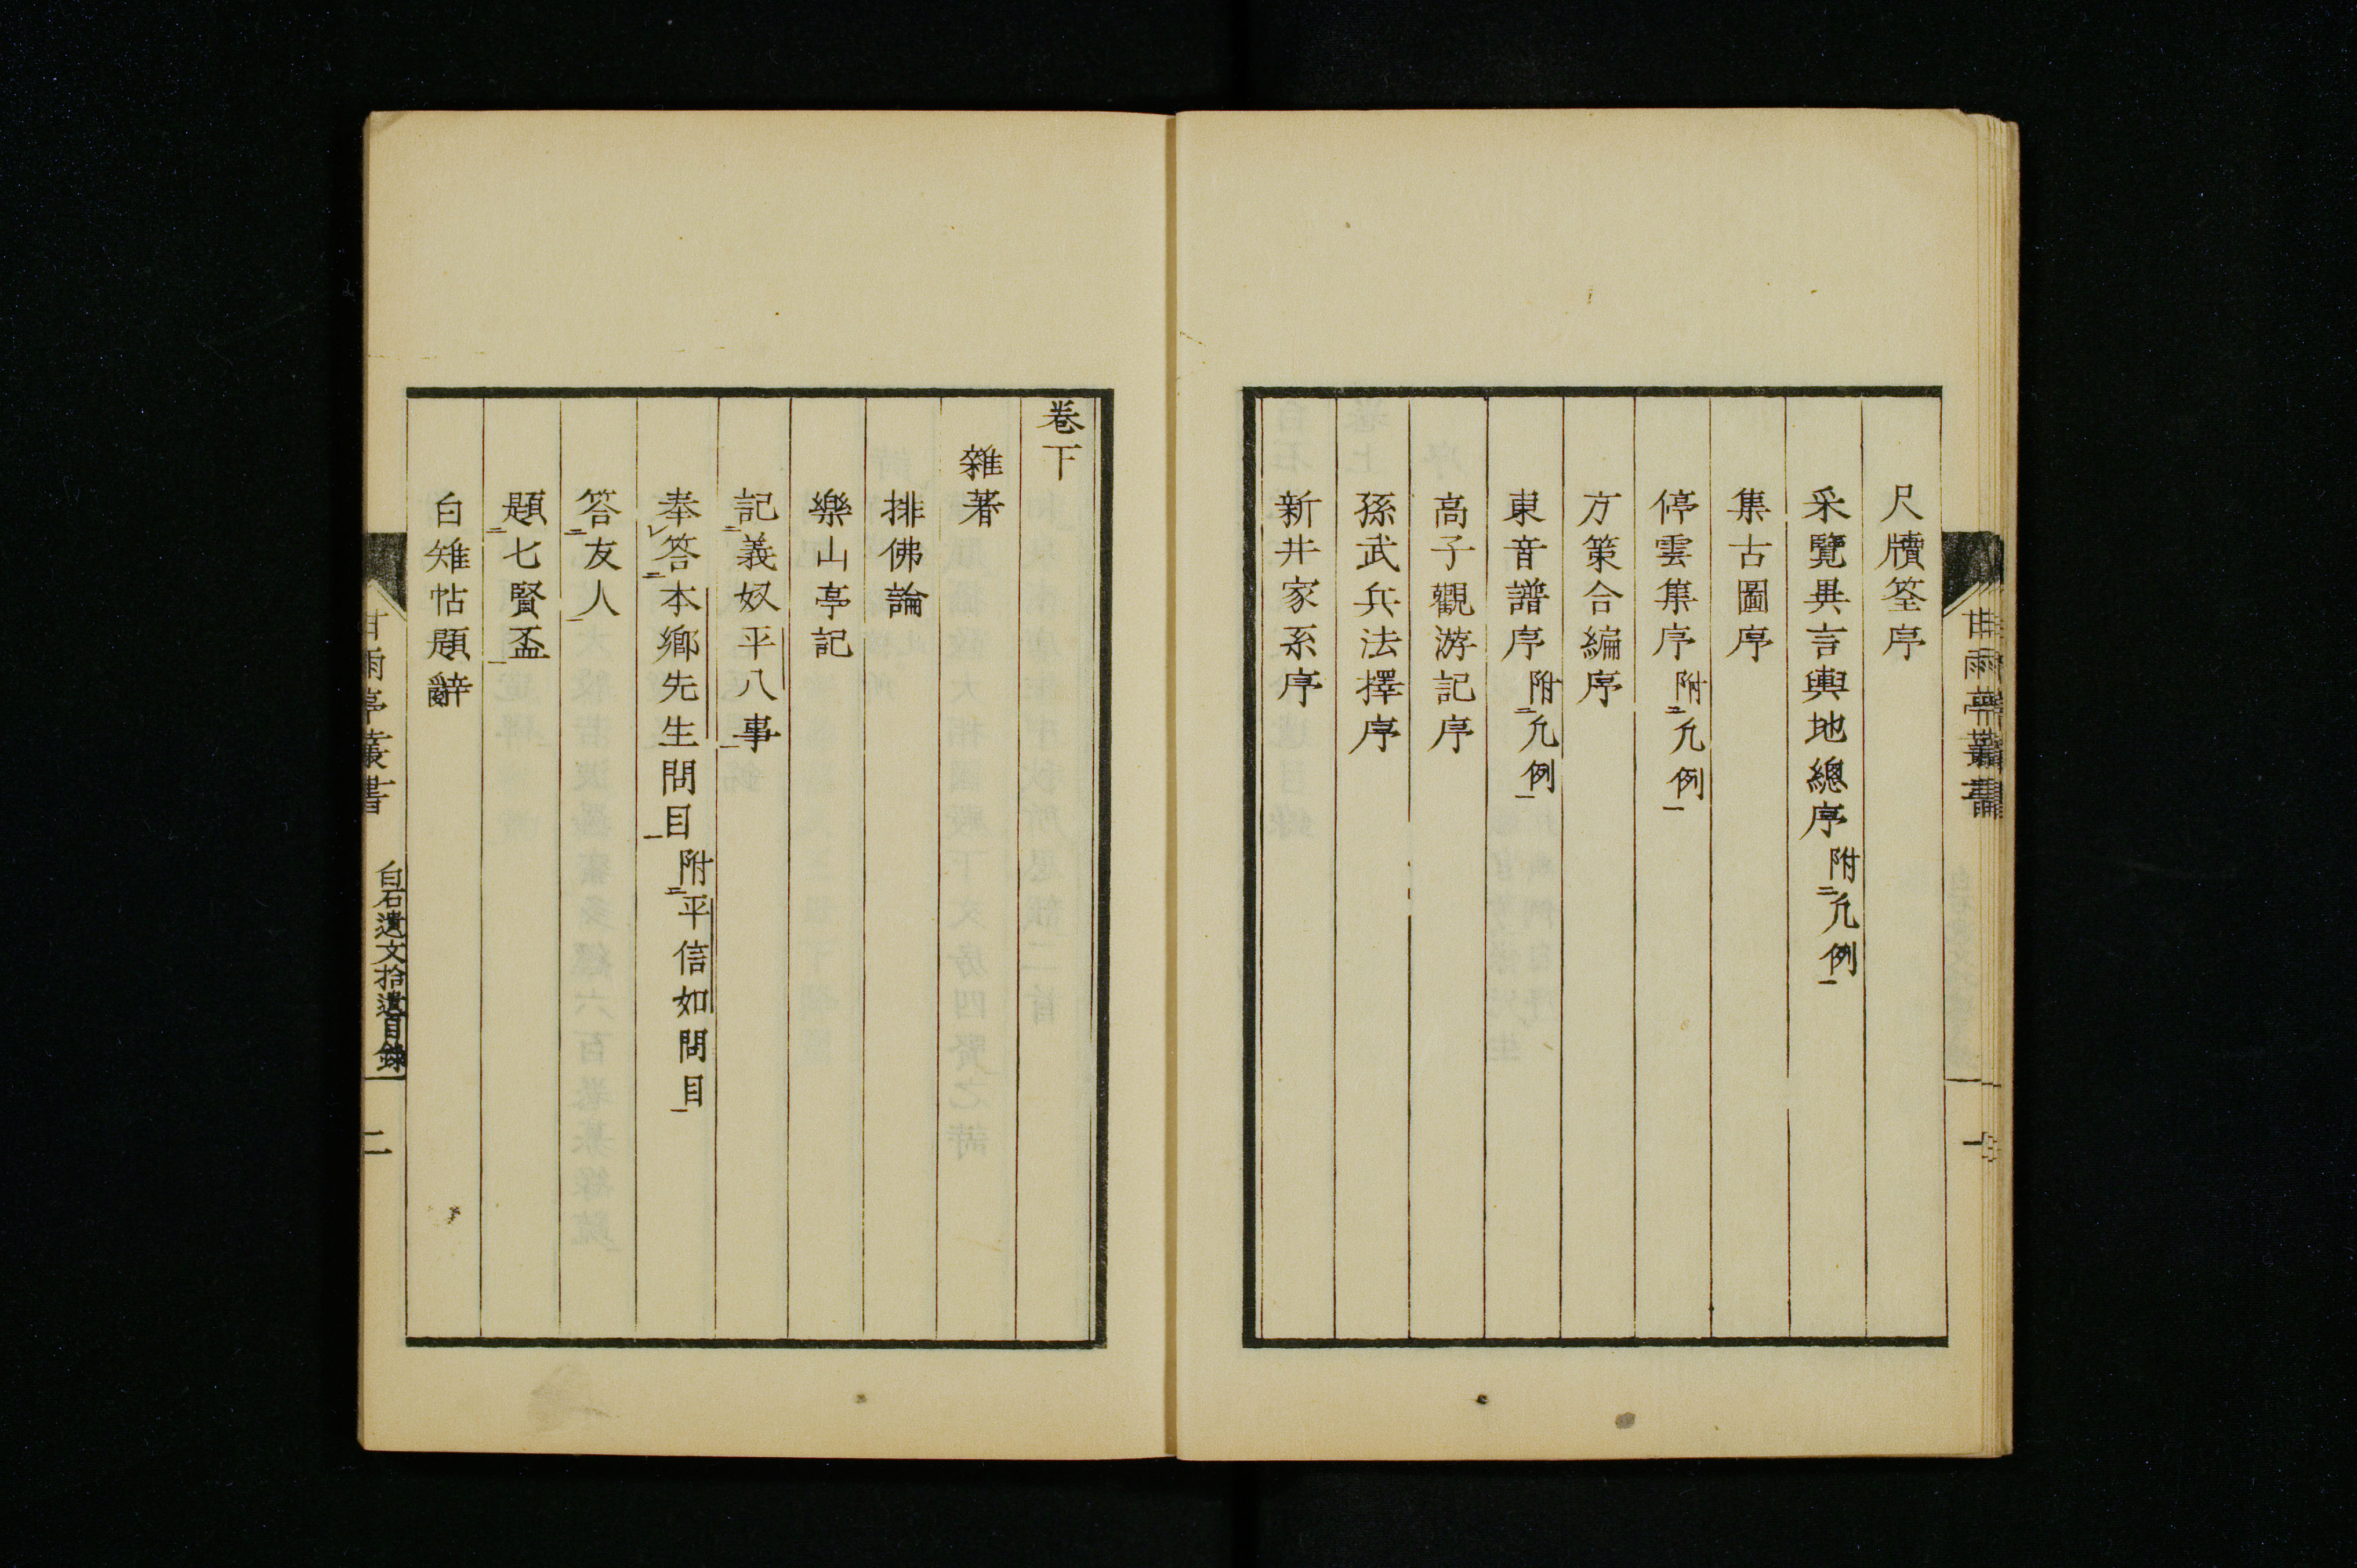 尺牘筌序
采覽異言輿地總序附凡例
集古圖序
停雲集序附凡例
方策合編序
東音譜序附凡例
高子觀游記序
孫武兵法擇序
新井家系序
卷下
雜著
排佛論
樂山亭記
記義奴平八事
奉答本鄉先生問目附平信如問目
答友人
題七賢盃
白雉帖題辭
甘雨亭叢書 白石遺文拾遺目錄 二